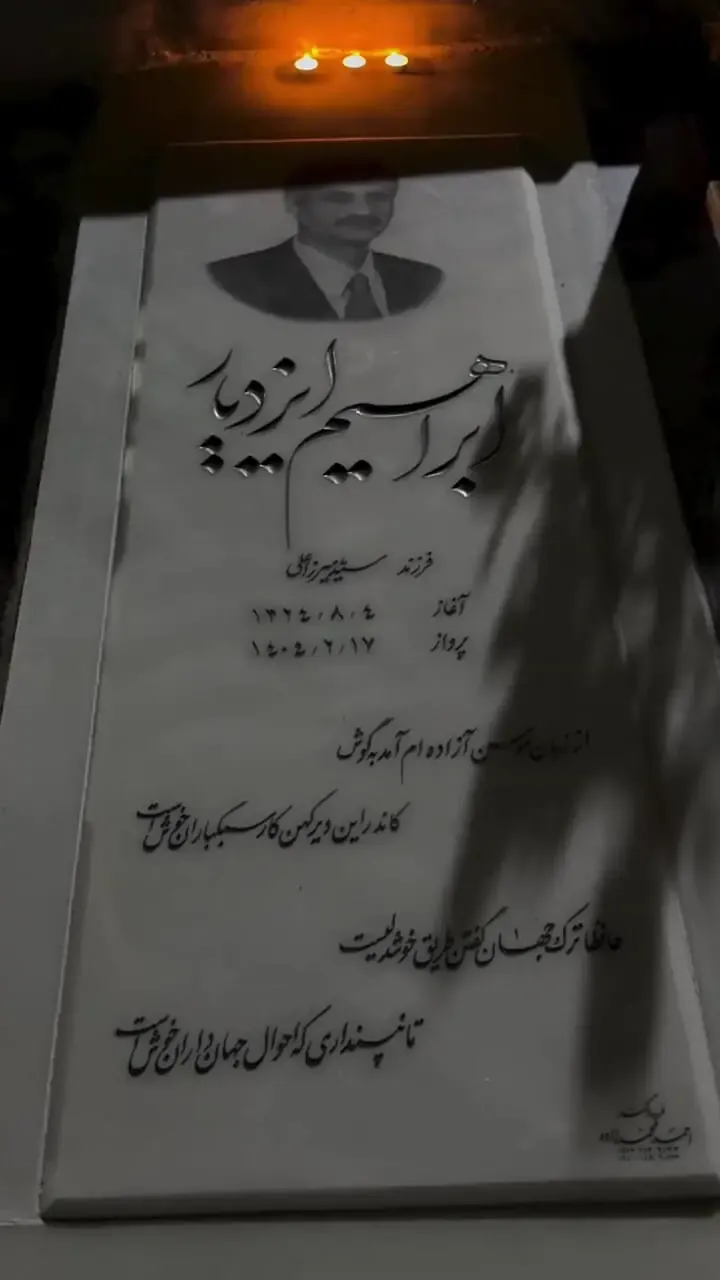 ابراهیم ایزدیار
فرزند سید میرزاعلی
آغاز ۱۳۲٤/۸/٤
پرواز ۱٤۰٤/۲/۱۷
از زبان سوسن آزاده ام آمد به گوش
کاندر این دیر کهن کار سبکباران خوش است
حافظا ترک جهان گفتن طریق خوشدلیست
تا نپنداری که احوال جهان داران خوش است
احمد